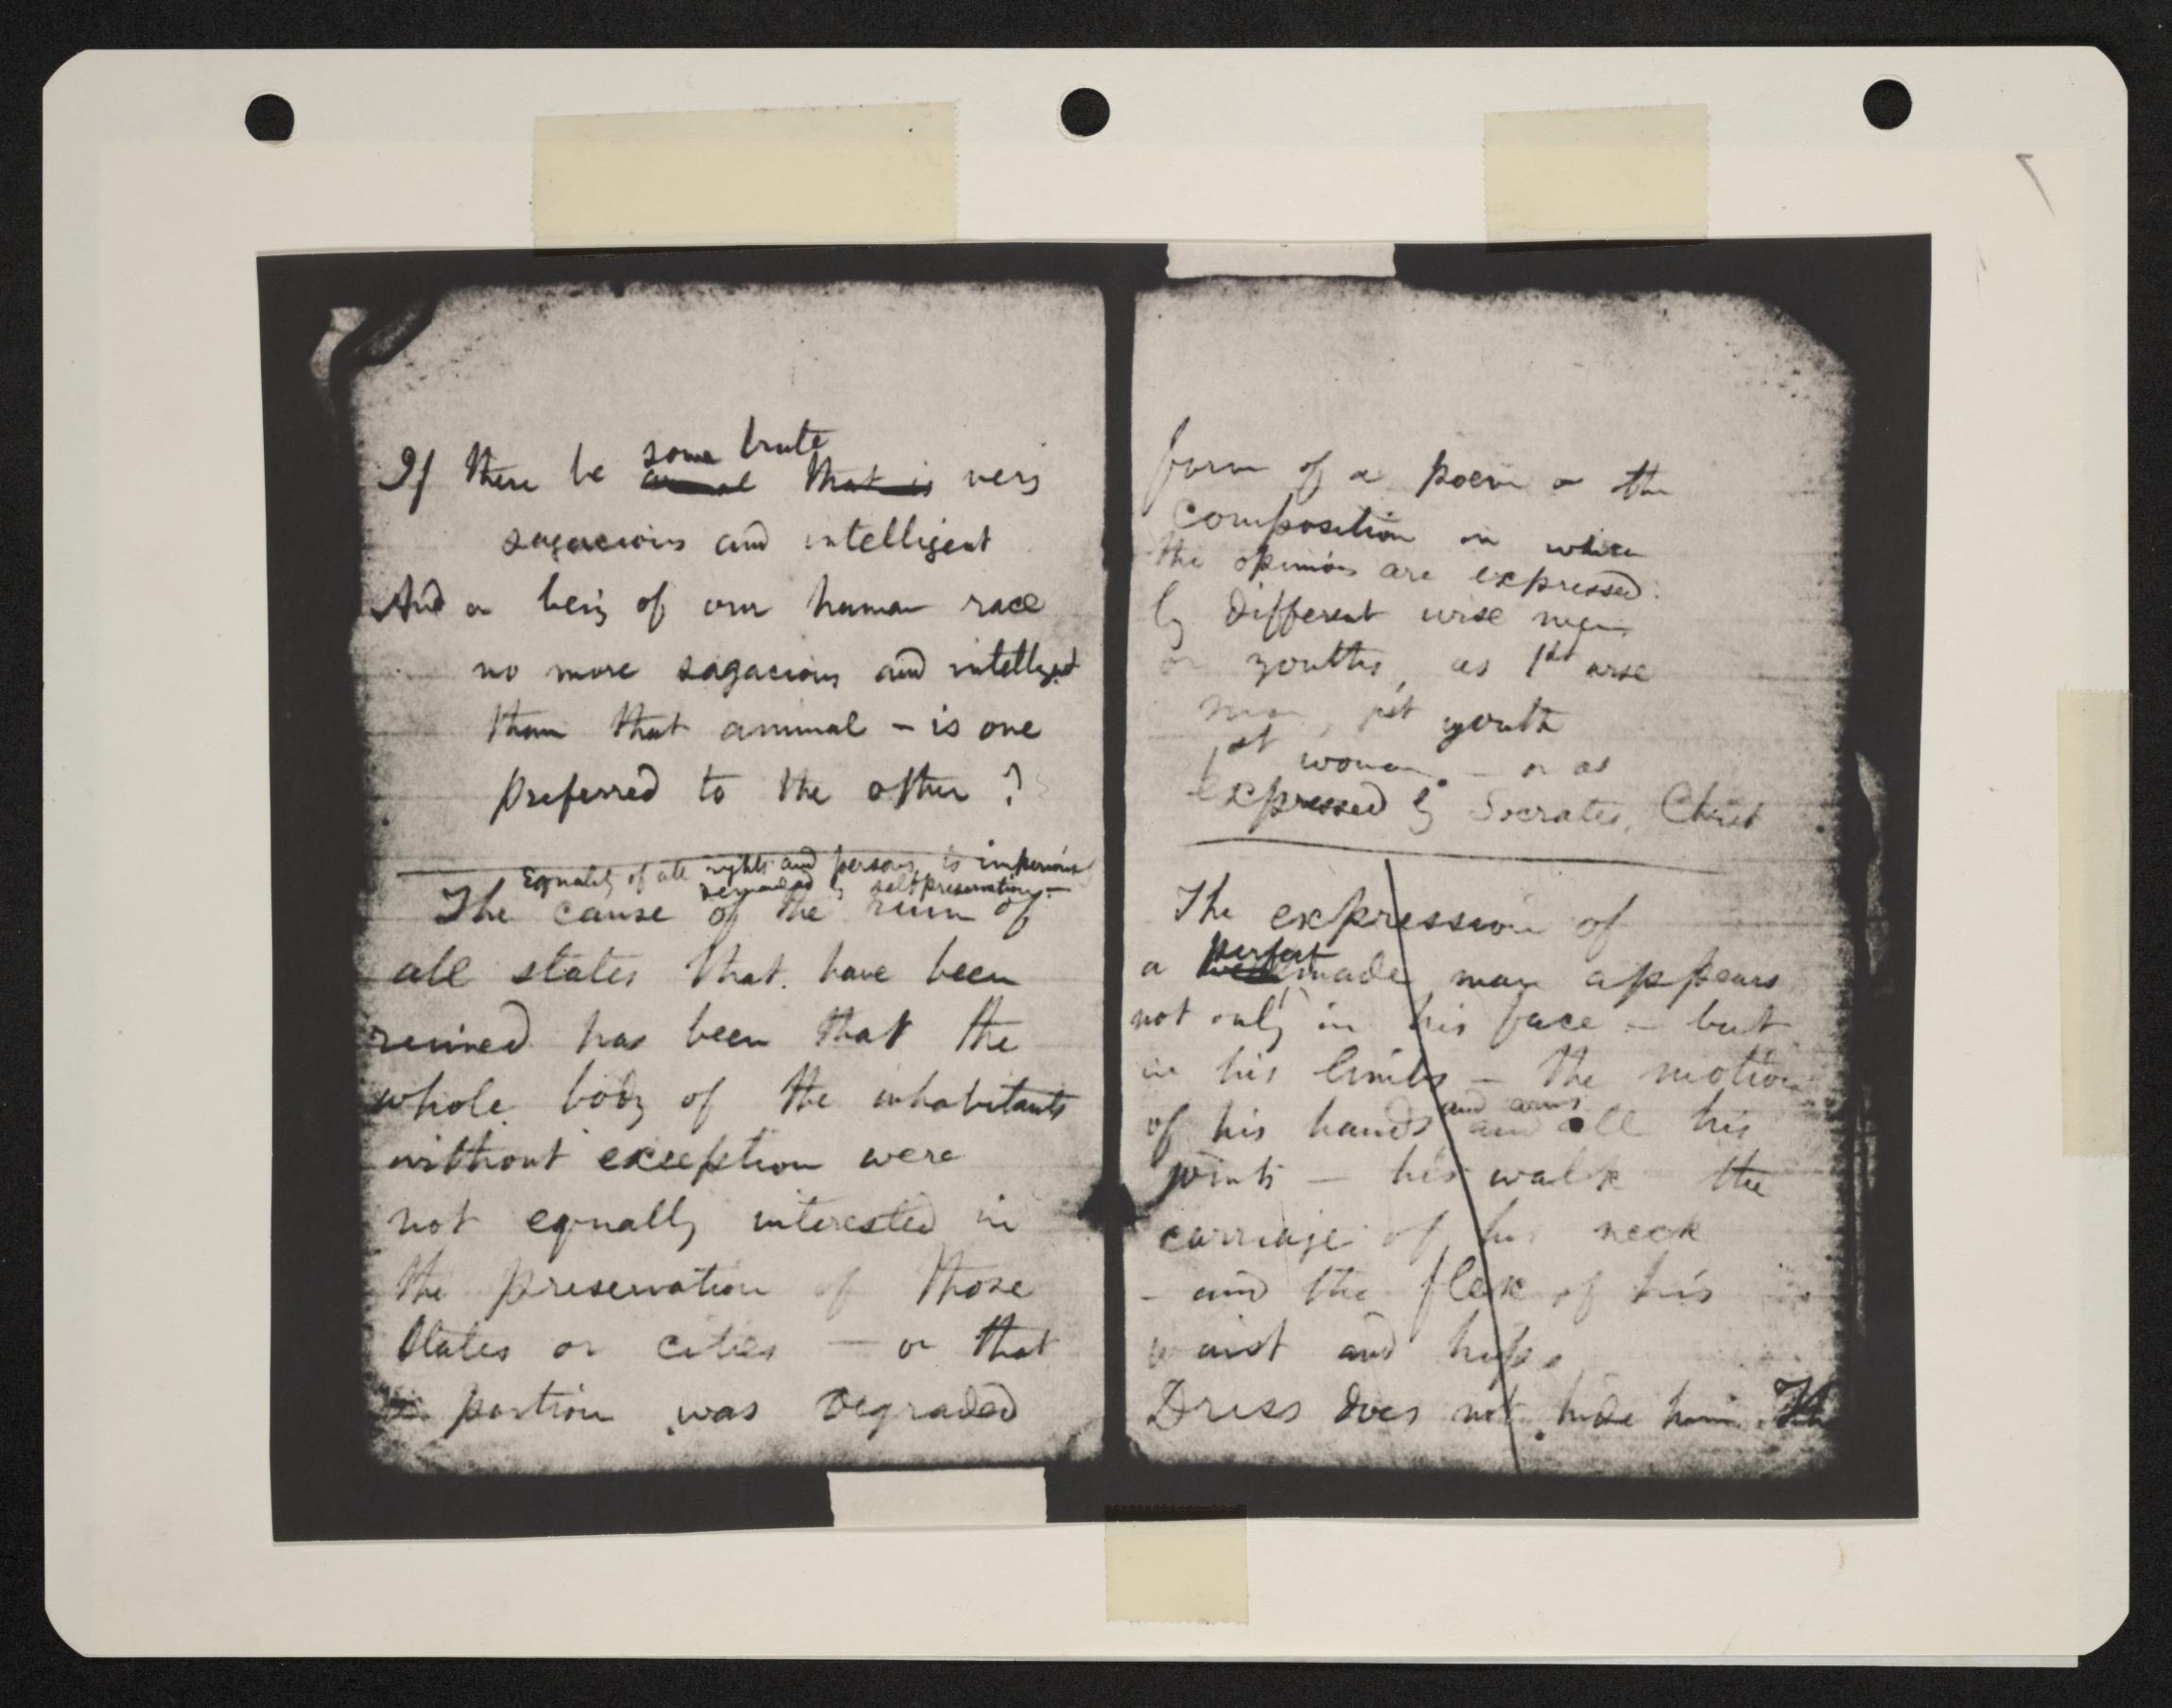 some brute
If there be animal that is very
sagacious and intelligent
And a being of our human race
no more sagacious and intelligent
than that animal – is one
preferred to the other?
Equality of all rights and persons is imperiously
demanded by self preservation –
The cause of the ruin of
all states that have been
ruined has been that the
whole body of the inhabitants
without exception were
not equally interested in
the preservation of those
States or cities — or that
portion was degraded
form of a poem or the
composition in which
the opinions are expressed
by different wise men
or youths, as 1st wise
man, 1st youth
1st woman. – or as
expressed by Socrates, Christ
The expression of
perfect
a well made man appears
not only in his face – but
in his limbs – the motion
and arms
of his hands and all his
joints – his walk the
carriage of his neck
– and the flex of his
waist and hips
Dress does not hide him. The